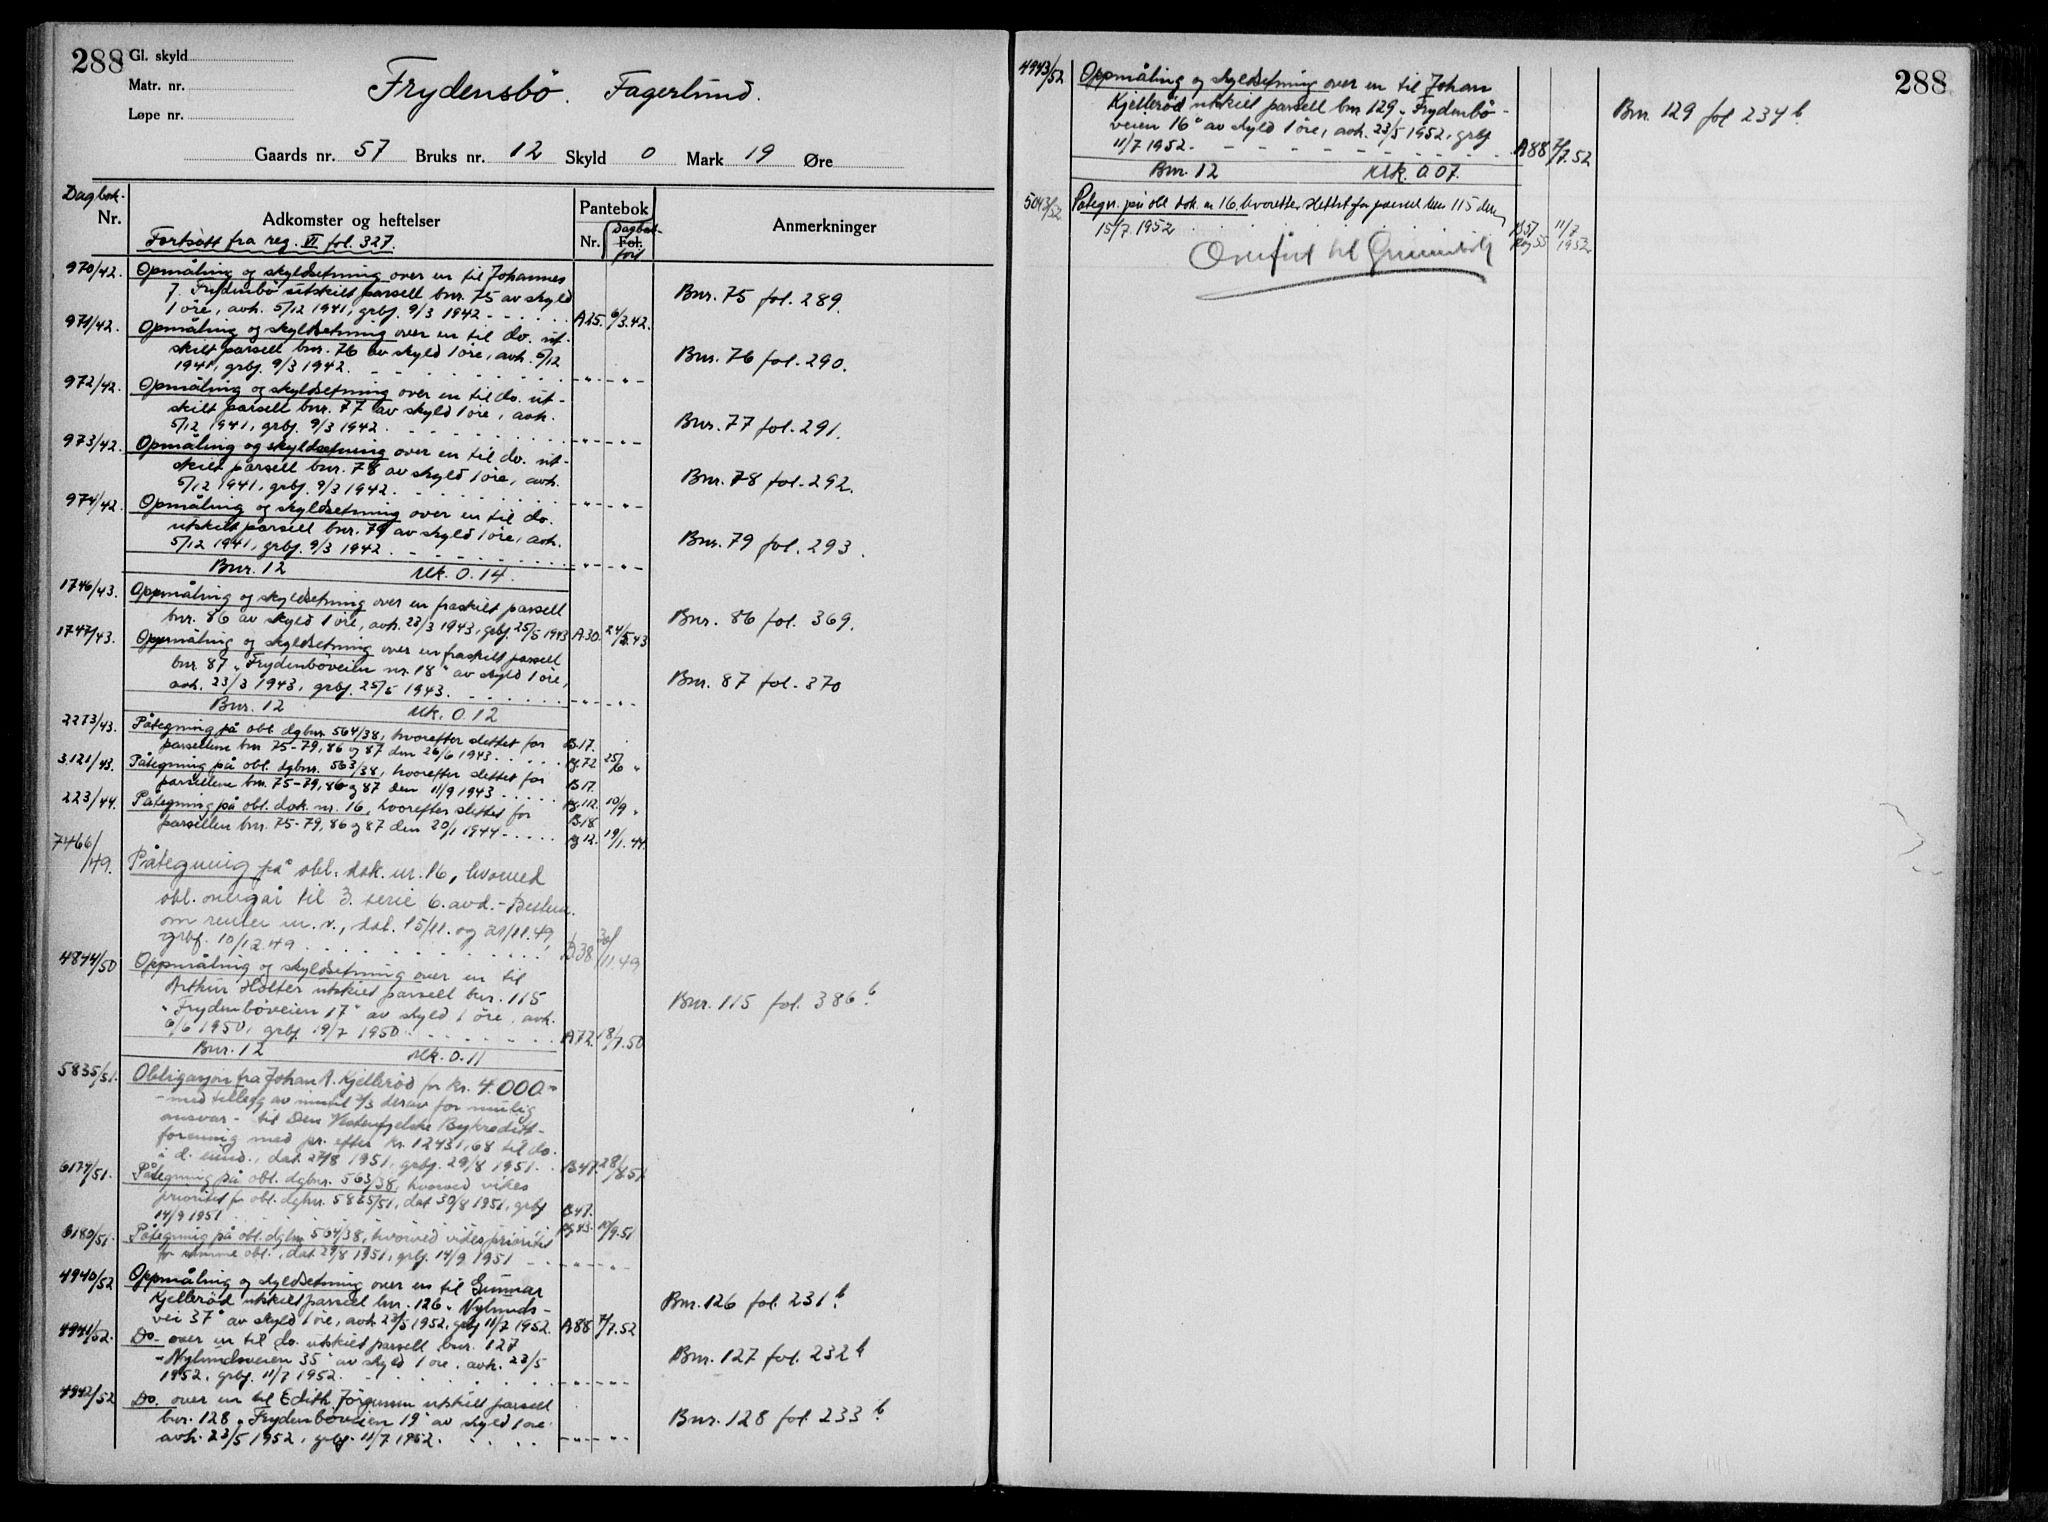 288
Gl. skyld
Matr. nr.
Løpe nr.
Frydensbö. Fagerlund.
Gaards nr. 57 Bruks nr. 12 Skyld 0 Mark 19 Øre
Dagbok.
Nr.
Adkomster og heftelser
Pantebok
Nr.
Dagbok-
Fol.
ført
Anmerkninger
Fortsatt fra reg. VI fol. 327.
970/42. Opmåling og skyldsetning over en til Johannes
J. Frydenbö utskilt parsell bnr. 75 av skyld
1 öre, avh. 5/12 1941, grbf. 9/3 1942 A25. 6/3.42. Bnr. 75 fol. 289.
971/42. Opmåling og skyldsetning over en til do. ut-
skilt parsell bnr. 76 av skyld 1 öre, avh. 5/12
1941, grbf. 9/3 1942. - " - - " - Bnr. 76 fol. 290.
972/42. Opmåling og skyldsetning over en til do. ut-
skilt parsell bnr. 77 av skyld 1 öre, avh.
5/12 1941, grbf. 9/3 1942. - " - - " - Bnr. 77 fol. 291.
973/42. Opmåling og skyldsetning over en til do. ut-
skilt parsell bnr. 78 av skyld 1 öre, avh.
5/12 1941, grbf. 9/3 1942. - " - - " - Bnr. 78 fol. 292.
974/42. Opmåling og skyldsetning over en til do.
utskilt parsell bnr. 79 av skyld 1 öre, avh.
5/12 1941, grbf. 9/3 1942 - " - - " - Bnr. 79 fol. 293.
Bnr. 12 Mk. 0.14.
1746/43. Oppmåling og skyldsetning over en fraskilt parsell
bnr. 86 av skyld 1 öre, avh. 23/3 1943, grbf. 25/5 1943 A30. 24/5.43 Bnr. 86 fol. 369.
1747/43. Oppmåling og skyldsetning over en fraskilt parsell
bnr. 87 "Frydenböveien nr. 18" av skyld 1 öre,
avh. 23/3 1943, grbf. 25/5 1943. - " - - " - Bnr. 87 fol. 370
Bnr. 12 Mk. 0.12
2273/43. Påtegning på obl. dgbnr. 564/38, hvorefter slettet for
parsellene bnr 75-79, 86 og 87 den 26/6 1943. B17. 72 25/6 "
3121/43. Påtegning på obl. dgbnr. 563/38, hvorefter slettet for
parsellene bnr. 75-79, 86 og 87 den 11/9 1943 B17. 112. 10/9 "
223/44. Påtegning på obl. dok. nr. 16, hvorefter slettet for
parsellen bnr. 75-79, 86 og 87 den 20/1 1944 B18. 12. 19/1.44.
7466/49. Påtegning på obl. dok. nr. 16, hvorved
obl. overgår til 3. serie 6. avd. - Bestem.
om renter m. v., dat. 15/11. og 21/11.49,
grbf. 10/12.49 B38 30/11.49
4874/50 Oppmåling og skyldsetning over en til
Arthur Holter utskilt parsell bnr. 115
"Frydenböveien 17" av skyld 1 öre, avh.
6/6 1950, grbf. 19/7 1950 A72. 18/7.50 Bnr. 115 fol. 386 b
Bnr. 12 Mk. 0.11
5835/51. Obligasjon fra Johan A. Kjelleröd for kr. 4.000-
- med tillegg av inntil 1/3 derav for mulig
ansvar - til Den Vestenfjelske Bykreditt-
forening med pr. efter kr. 12431,68 til do.
i d. eiend., dat. 27/8 1951, grbf. 29/8 1951. B47. 28/8.51
6177/51. Påtegning på obl. dgbnr. 563/38, hvorved vikes
prioritet for obl. dgbnr. 5835/51, dat 30/8 1951, grbf
14/9 1951 B47. 43.
6180/51. Påtegning på obl. dgbnr 564/38, hvorved vikes prioritet
for samme obl., dat 29/8 1951, grbf. 14/9 1951 - " - - " -
4940/52 Oppmåling og skyldsetning over en til Gunnar
Kjelleröd utskilt parsell bnr. 126 "Nylunds-
vei 37" av skyld 1 öre, avh 23/5 1952, grbf 11/7 1952. A88 7/7.52 Bnr. 126 fol. 231 b.
4941/52. Do. over en til do. utskilt parsell bnr. 127
"Nylundsveien 35" av skyld 1 öre, avh. 23/5
1952, grbf. 11/7 1952. - " - - " - Bnr. 127 fol. 232 b
4942/52 Do. over en til Edith Jörgensen utskilt parsell
bnr. 128 "Frydenböveien 19" av skyld 1 öre
avh. 23/5 1952, grbf. 11/7 1952. - " - - " - Bnr. 128 fol. 233 b.
288
4943/52 Oppmåling og skyldsetning over en til Johan
Kjelleröd utskilt parsell bnr 129 "Frydenbö-
veien 16" av skyld 1 öre, avh. 23/5 1952, grbf
11/7 1952. A88 7/7.52 Bnr. 129 fol 234 b.
Bnr. 12 Mk. 0 07.
5043/52 Påtegn. på obl dok. nr 16. hvoretter slettet for parsell bnr 115 den
15/7. 1952 55 11/7 1952
Overført til Grunnbok